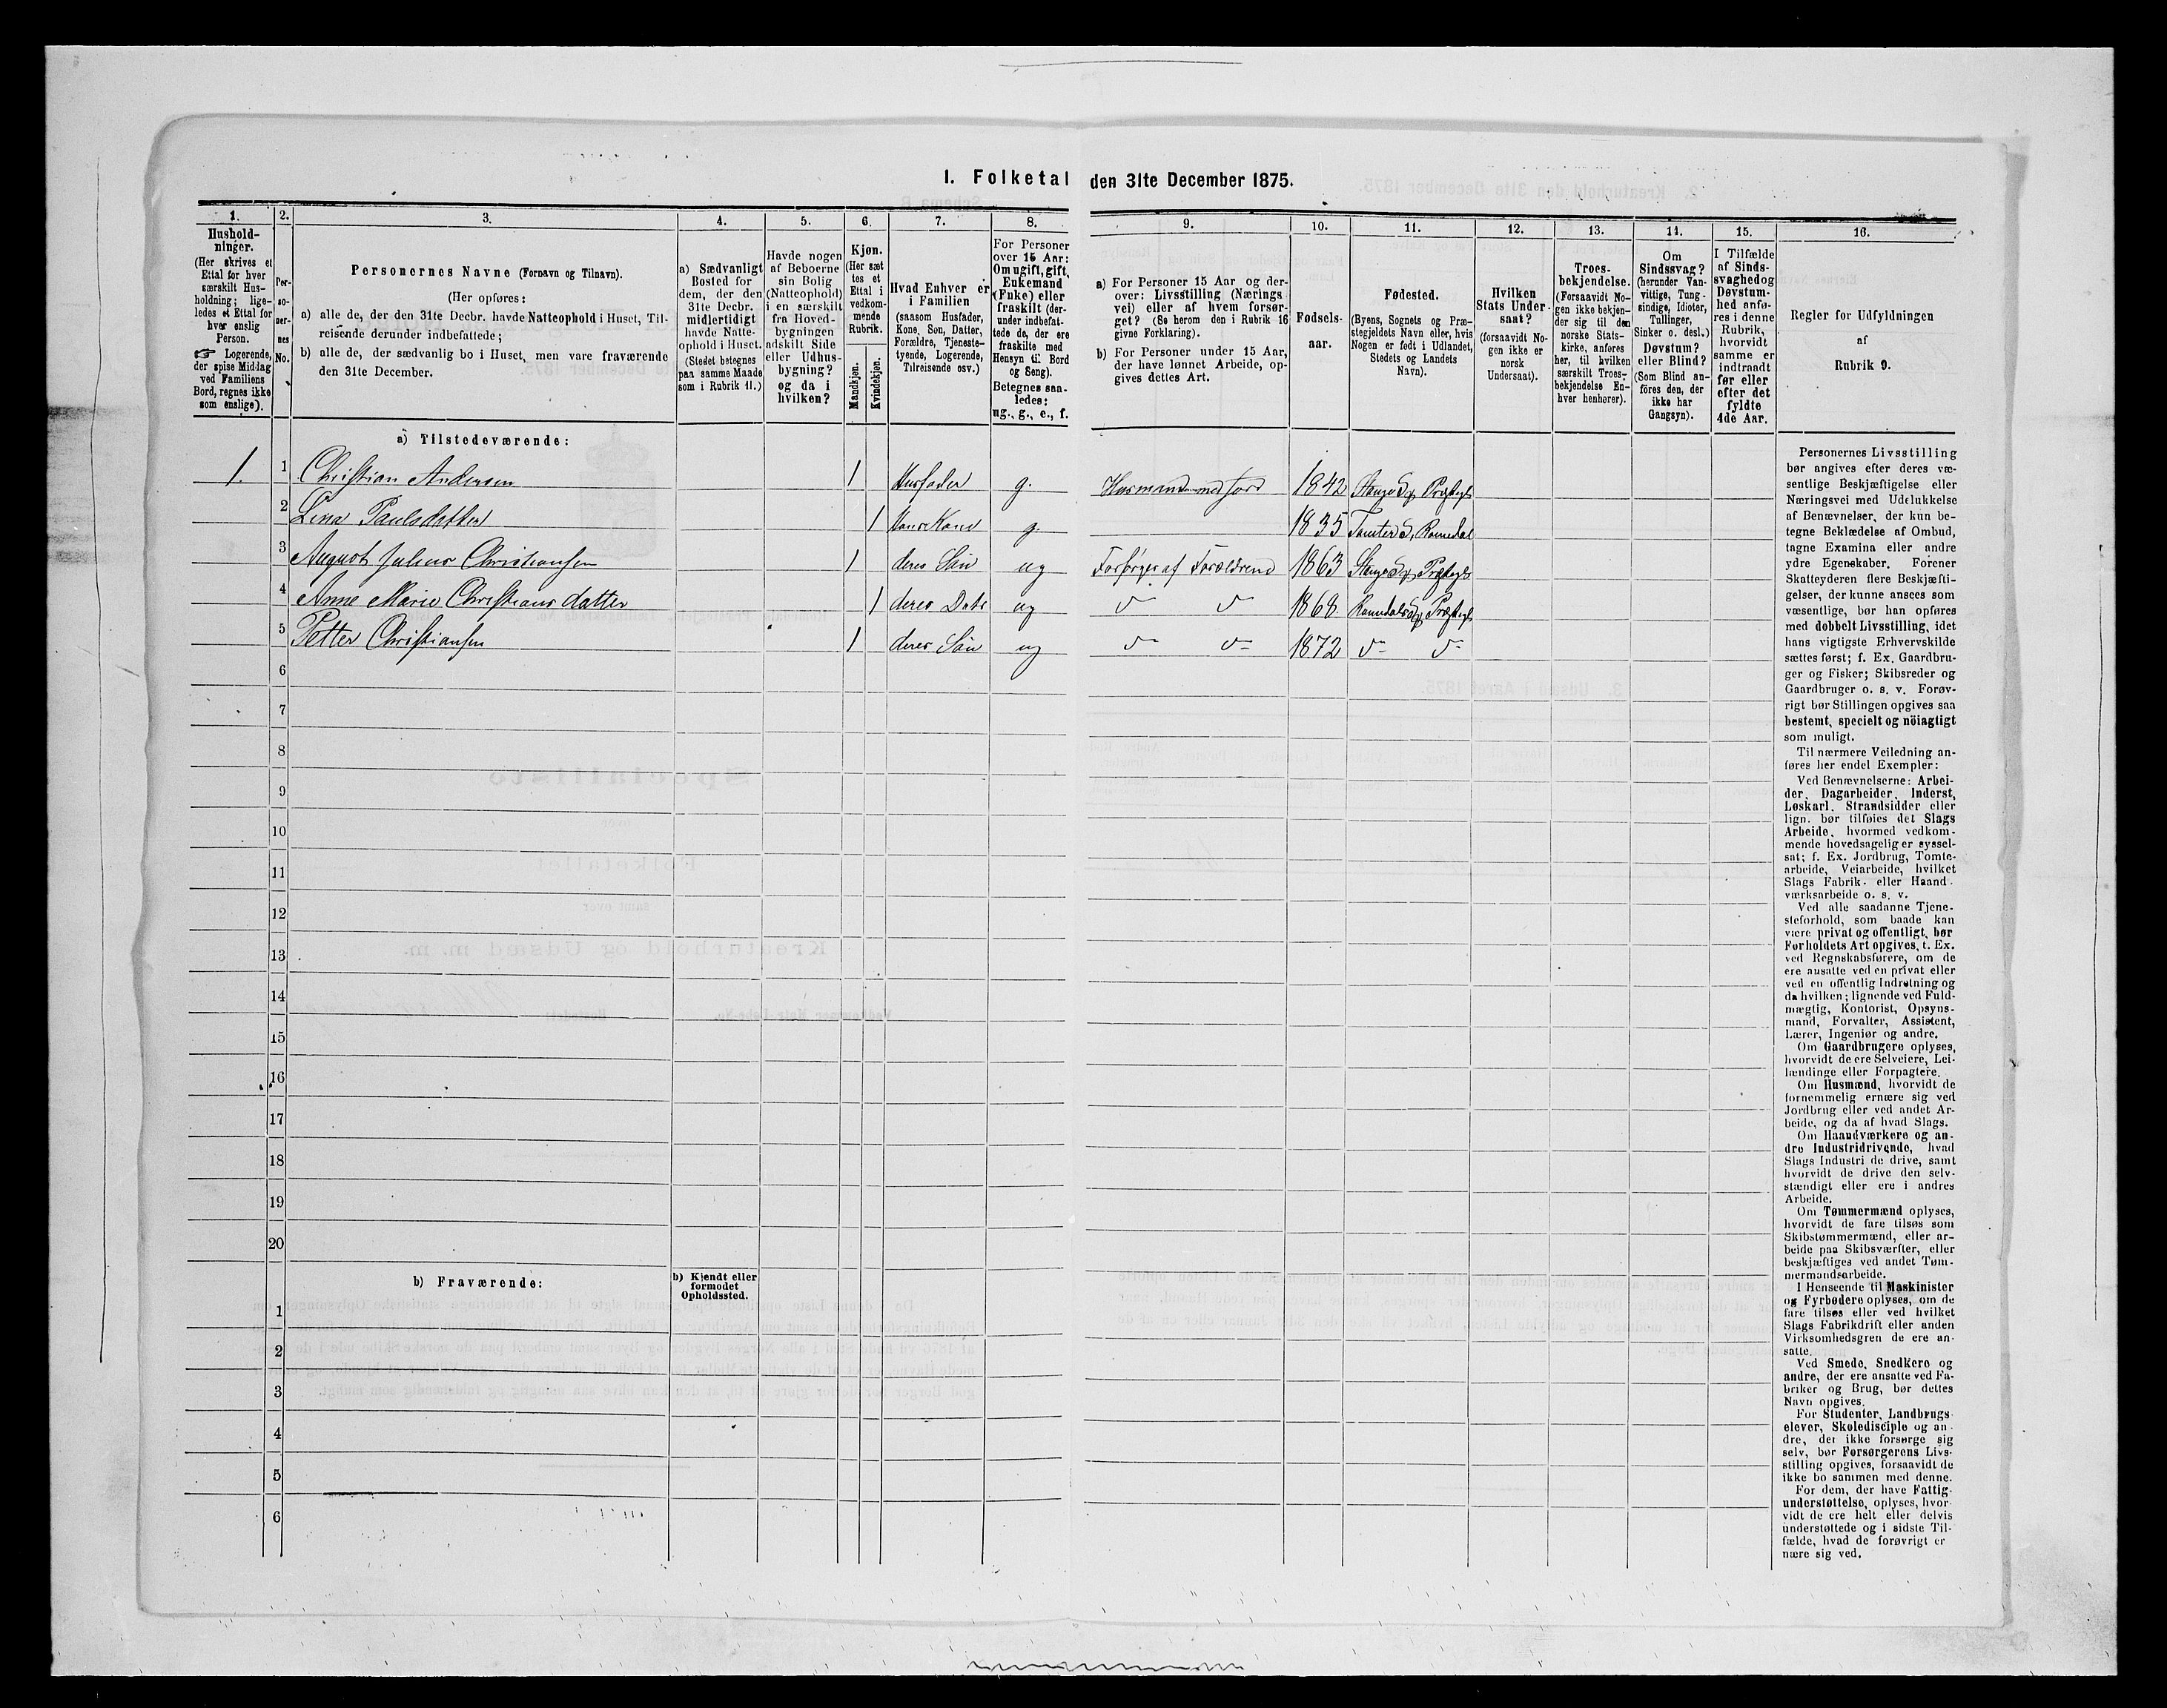 I. Folketal den 31te December 1875.
1. 2. 3. 4. 5. 6. 7. 8. 9. 10. 11. 12. 13. 14. 15. 16.
Hushold-
ninger.
(Her skrives et
Ettal for hver
særskilt Hus-
holdning; lige-
ledes et Ettal for
hver enslig
Person.
☞ Logerende,
der spise Middag
ved Familiens
Bord, regnes ikke
som enslige).
Per-
so-
ner-
nes
No.
Personernes Navne (Fornavn og Tilnavn).
(Her opføres:
a) alle de, der den 31te Decbr. havde Natteophold i Huset, Til-
reisende derunder indbefattede;
b) alle de, der sædvanlig bo i Huset, men vare fraværende
den 31te December.
a) Sædvanligt
Bosted for
dem, der den
31te Decbr.
midlertidigt
havde Natte-
ophold i Huset.
(Stedet betegnes
paa samme Maade
som i Rubrik 11.)
Havde nogen
af Beboerne
sin Bolig
(Natteophold)
i en særskilt
fra Hoved-
bygningen
adskilt Side
eller Udhus-
bygning?
og da i
hvilken?
Kjøn.
(Her sæt
tes et
Ettal i
vedkom-
mende
Rubrik.
Mandkjøn.
Kvindekjøn.
Hvad Enhver er
i Familien
(saasom Husfader,
Kone, Søn, Datter,
Forældre, Tjeneste-
tyende, Logerende,
Tilreisende osv.)
For Personer
over 15 Aar:
Om ugift, gift,
Enkemand
(Fuke) eller
fraskilt (der-
under indbefat-
tede de, der ere
fraskilte med
Hensyn til Bord
og Seng).
Betegnes saa-
ledes:
ug., g., e., f.
a) For Personer 15 Aar og der-
over: Livsstilling (Nærings
vei) eller af hvem forsør-
get? (Se herom den i Rubrik 16
givne Forklaring).
b) For Personer under 15 Aar,
der have lønnet Arbeide, op-
gives dettes Art.
Fødsels-
aar.
Fødested.
(Byens, Sognets og Præ-
stegjeldets Navn eller, hvis
Nogen er født i Udlandet,
Stedets og Landets
Navn).
Hvilken
Stats Under-
saat?
(forsaavidt No-
gen ikke er
norsk
Undersaat).
Troes-
bekjendelse.
(Forsaavidt No-
gen ikke bekjen-
der sig til den
norske Stats-
kirke, anføres
her, til hvilken
særskilt Troes-
bekjendelse En-
hver henhører).
Om
Sindssvag?
(herunder Van-
vittige, Tung-
sindige, Idioter,
Tullinger,
Sinker o. desl.)
Døvstum?
eller Blind?
(Som Blind an-
föres den, der
ikke har
Gangsyn).
I Tilfælde
af Sinds-
svaghed og
Døvstum-
hed anfø-
res i denne
Rubrik,
hvorvidt
samme er
indtraadt
før eller
efter det
fyldte
4de Aar.
Regler for Udfyldningen
af
Rubrik 9.
a) Tilstedeværende:
1. 1 Christian Andersen 1 Husfader g. Husmand med Jord 1842 Stange Sg Præstegl
2 Lina Paulsdatter 1 Hans Kone g. 1835 Tomter S, Romedal
3 August Julius Christiansen 1 deres Sön ug Forsørges af Forældrene 1863 Stange Sg Præstegl
4 Anne Marie Christiansdatter 1 deres Datr ug 1868 Romedals Sg Præstegl
5 Petter Christiansen 1 deres Sön ug 1872
6
7
8
9
10
11
12
13
14
15
16
17
18
19
20
b) Fraværende:
b) Kjendt eller
formodet
Opholdssted.
1
2
3
4
5
6
Personernes Livsstilling
bør angives efter deres væ-
sentlige Beskjæftigelse eller
Næringsvei med Udelukkelse
af Benævnelser, der kun be-
tegne Beklædelse af Ombud,
tagne Examina eller andre
ydre Egenskaber. Forener
Skatteyderen flere Beskjæfti-
gelser, der kunne ansees som
væsentlige, bør han opføres
med dobbelt Livsstilling, idet
hans vigtigste Erhvervskilde
sættes først; f. Ex. Gaardbru-
ger og Fisker; Skibsreder og
Gaardbruger o. s. v. Forøv-
rigt bør Stillingen opgives saa
bestemt, specielt og nöiagtigt
som muligt.
Til nærmere Veiledning an-
føres her endel Exempler:
Ved Benævnelserne: Arbei-
der, Dagarbeider, Inderst,
Løskarl, Strandsidder eller
lign. bør tilføies det Slags
Arbeide, hvormed vedkom-
mende hovedsagelig er syssel-
sat; f. Ex. Jordbrug, Tomte-
arbeide, Veiarbeide, hvilket
Slags Fabrik- eller Haand-
værksarbeide o. s. v.
Ved alle saadanne Tjene-
steforhold, som baade kan
være privat og offentligt, bør
Forholdets Art opgives, t. Ex.
ved Regnskabsførere, om de
ere ansatte ved en privat eller
ved en offentlig Indretning og
da hvilken; lignende ved Fuld-
mægtig, Kontorist, Opsyns-
mand, Forvalter, Assistent,
Lærer, Ingeniør og andre.
Om Gaardbrugere oplyses,
hvorvidt de ere Selveiere, Lei-
lændinge eller Forpagtere.
Om Husmænd, hvorvidt de
fornemmelig ernære sig ved
Jordbrug eller ved andet Ar-
beide, og da af hvad Slags.
Om Haandværkere og an-
dre Industridrivende, hvad
Slags Industri de drive, samt
hvorvidt de drive den selv-
stændigt eller ere i andres
Arbeide.
Om Tømmermænd oplyses,
hvorvidt de fare tilsøs som
Skibstømmermænd, eller ar-
beide paa Skibsværfter, eller
beskjæftiges ved andet Tøm-
mermandsarbeide.
I Henseende til Maskinister
og Fyrbødere oplyses, om de
fare tilsøs eller ved hvilket
Slags Fabrikdrift eller anden
Virksomhedsgren de ere an-
satte.
Ved Smede, Snedkere og
andre, der ere ansatte ved Fa-
briker og Brug, bør dettes
Navn opgives.
For Studenter, Landbrugs-
elever, Skoledisciple og an-
dre, der ikke forsørge sig
selv, bør Forsørgerens Livs-
stilling opgives, forsaavidt de
ikke bo sammen med denne.
For dem, der have Fattig-
understøttelse, oplyses, hvor-
vidt de ere helt eller delvis
understøttede og i sidste Til-
fælde, hvad de forøvrigt er-
nære sig ved.